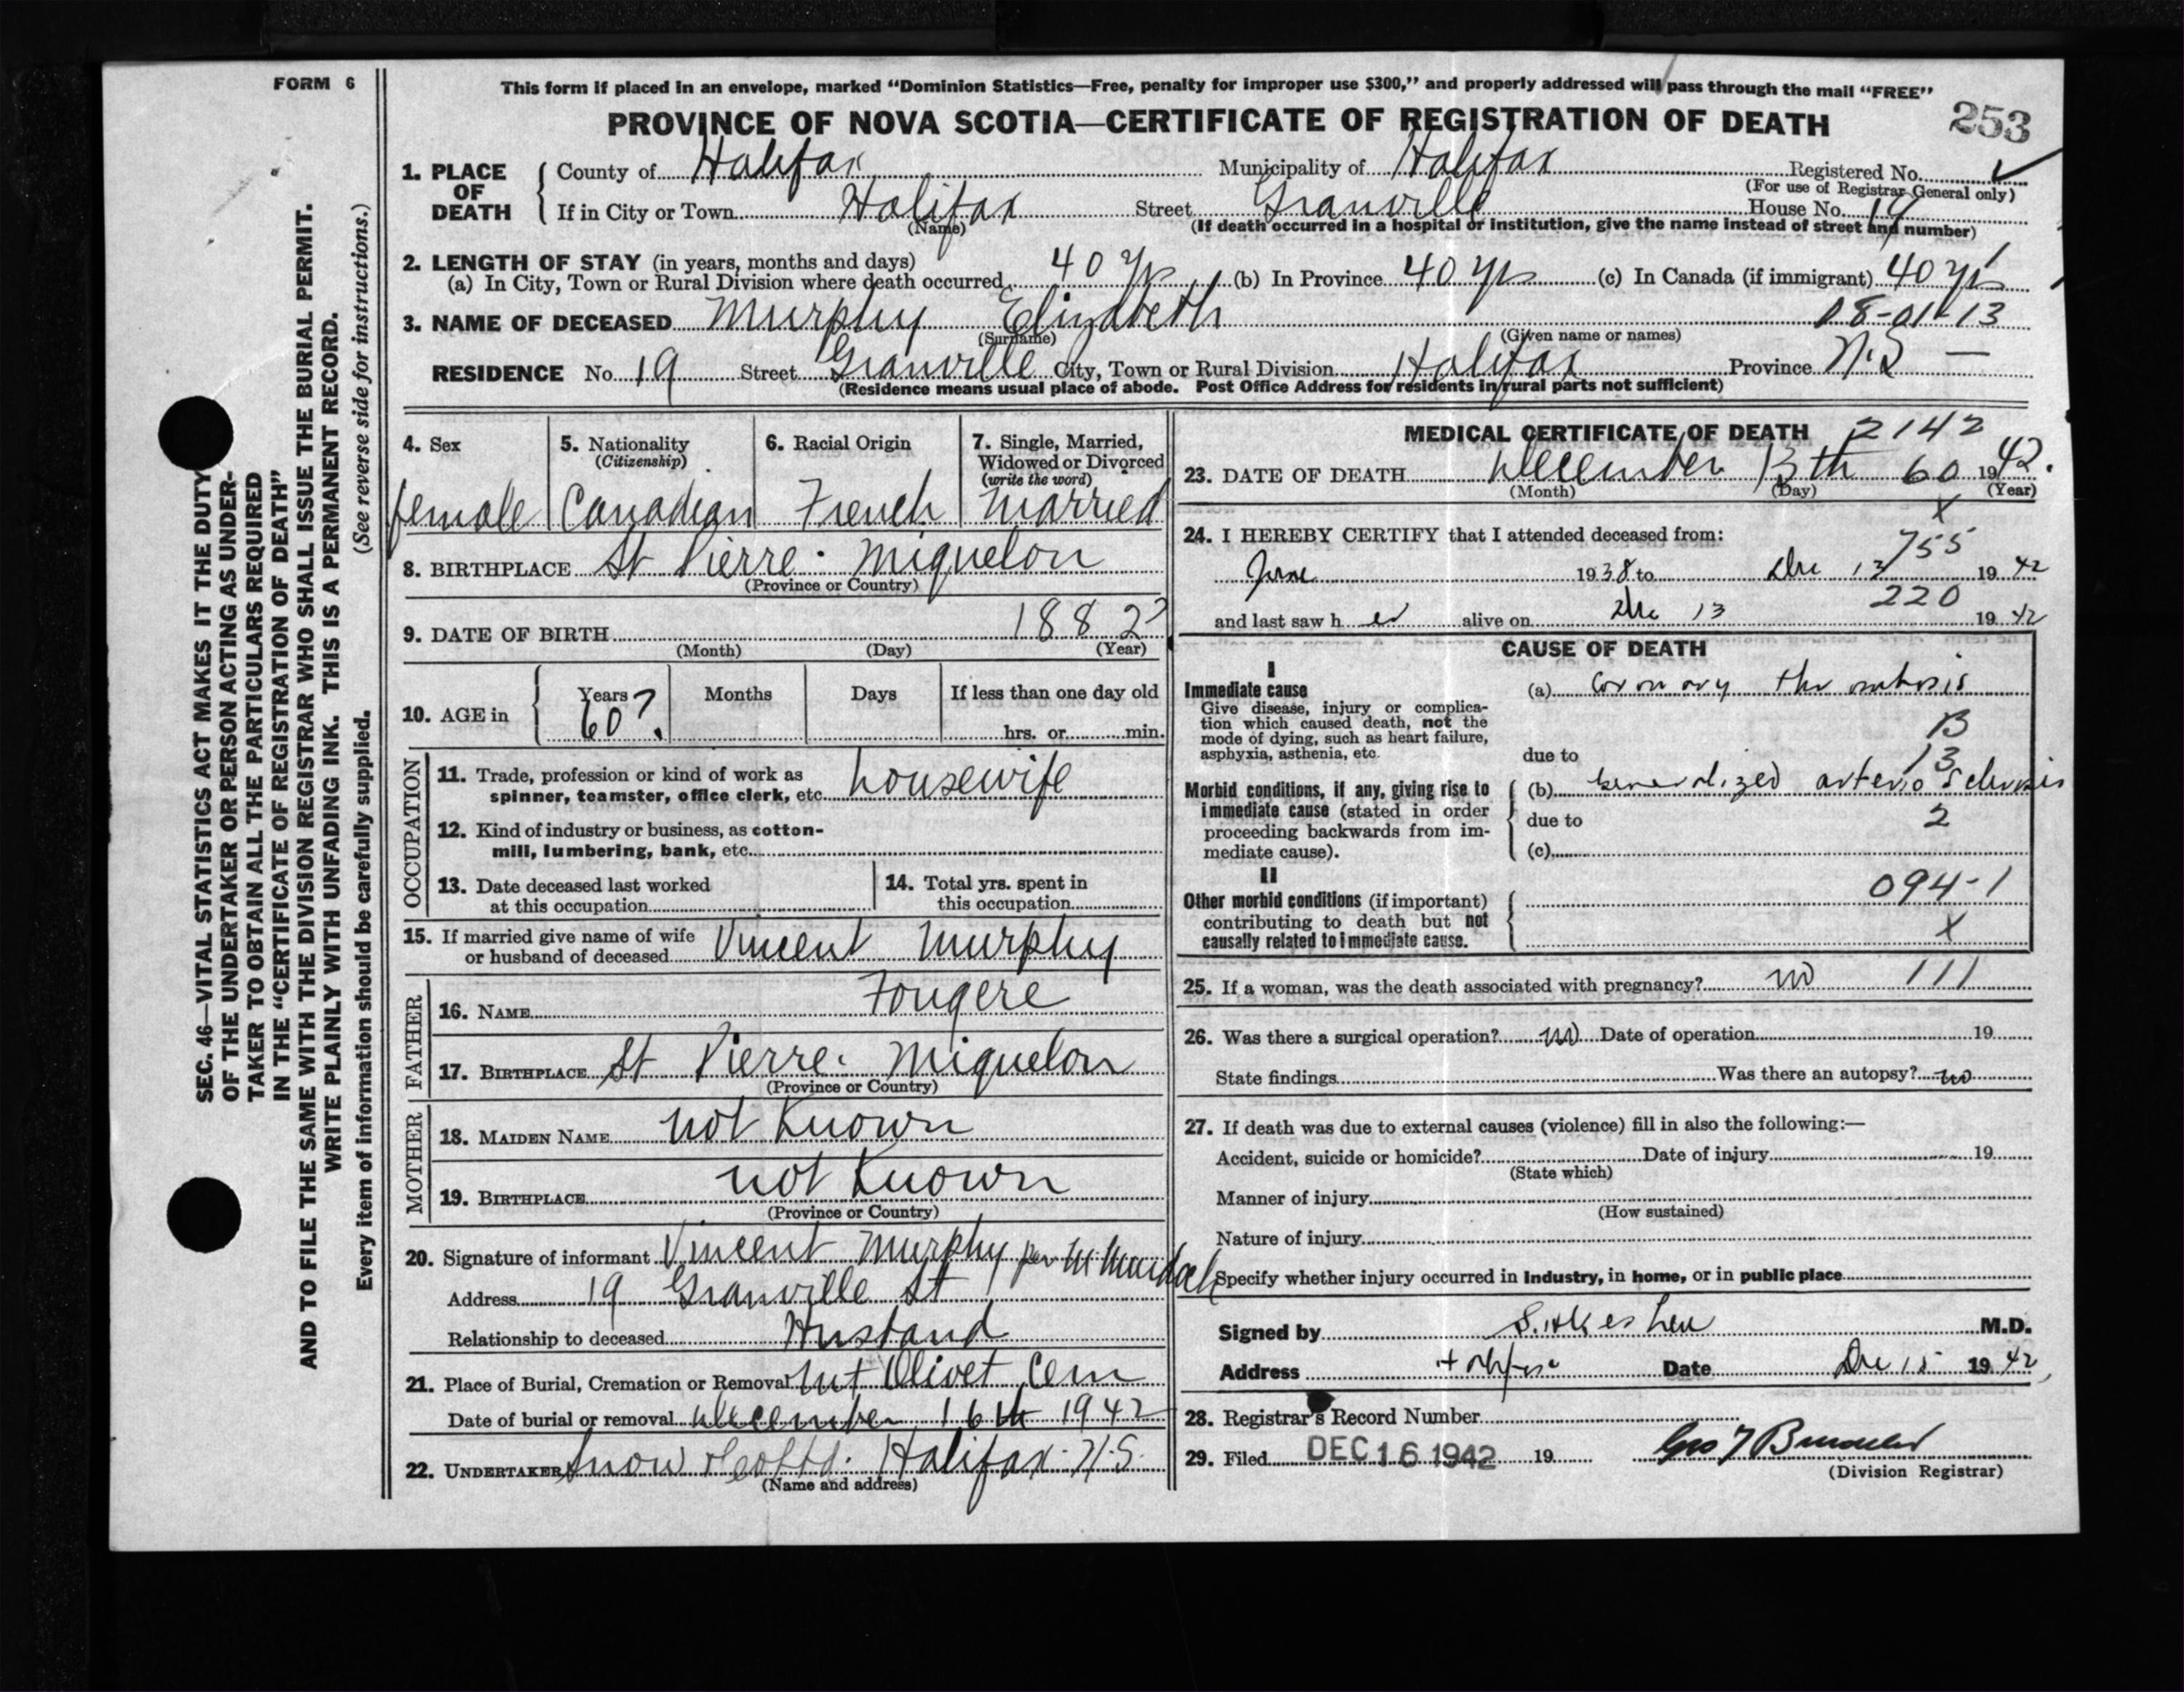 FORM 6
This form if placed in an envelope, marked “Dominion Statistics—Free, penalty for improper use $300,” and properly addressed will pass through the mail “FREE”
PROVINCE OF NOVA SCOTIA—CERTIFICATE OF REGISTRATION OF DEATH 253
1. PLACE OF DEATH County of Halifax Municipality of Halifax Registered No. ✓
(For use of Registrar General only)
If in City or Town Halifax Street Granville House No. 19
(Name) (If death occurred in a hospital or institution, give the name instead of street and number)
2. LENGTH OF STAY (in years, months and days)
(a) In City, Town or Rural Division where death occurred 40 yrs (b) In Province 40 yrs (c) In Canada (if immigrant) 40 yrs
3. NAME OF DECEASED Murphy Elizabeth 08-01-13
(Surname) (Given name or names)
RESIDENCE No. 19 Street Granville City, Town or Rural Division Halifax Province N.S —
(Residence means usual place of abode. Post Office Address for residents in rural parts not sufficient)
4. Sex
female
5. Nationality
(Citizenship)
Canadian
6. Racial Origin
French
7. Single, Married,
Widowed or Divorced
(write the word)
Married
8. BIRTHPLACE St Pierre. Miquelon
(Province or Country)
9. DATE OF BIRTH 1882?
(Month) (Day) (Year)
10. AGE in Years 60? Months Days If less than one day old
hrs. or min.
OCCUPATION
11. Trade, profession or kind of work as
spinner, teamster, office clerk, etc. housewife
12. Kind of industry or business, as cotton-
mill, lumbering, bank, etc.
13. Date deceased last worked
at this occupation
14. Total yrs. spent in
this occupation
15. If married give name of wife
or husband of deceased Vincent Murphy
FATHER
16. NAME Fougere
17. BIRTHPLACE St Pierre. Miquelon
(Province or Country)
MOTHER
18. MAIDEN NAME not Known
19. BIRTHPLACE not Known
(Province or Country)
20. Signature of informant Vincent Murphy per
Address 19 Granville St
Relationship to deceased Husband
21. Place of Burial, Cremation or Removal Mt Olivet Cem
Date of burial or removal December 16th 1942
22. UNDERTAKER Snow Halifax. N.S.
(Name and address)
MEDICAL CERTIFICATE OF DEATH 2142
23. DATE OF DEATH December 13th 60 1942.
(Month) (Day) (Year)
X
24. I HEREBY CERTIFY that I attended deceased from:
755
June 1938 to Dec 13 1942
220
and last saw her alive on Dec 13 1942
CAUSE OF DEATH
I
Immediate cause
Give disease, injury or complica-
tion which caused death, not the
mode of dying, such as heart failure,
asphyxia, asthenia, etc.
(a) Coronary thrombosis
B
13
due to
Morbid conditions, if any, giving rise to
immediate cause (stated in order
proceeding backwards from im-
mediate cause).
(b) Generalized arterio sclerosis
due to 2
(c)
II
Other morbid conditions (if important)
contributing to death but not
causally related to immediate cause.
094-1
X
25. If a woman, was the death associated with pregnancy? no 111
26. Was there a surgical operation? no Date of operation 19
State findings Was there an autopsy? no
27. If death was due to external causes (violence) fill in also the following:—
Accident, suicide or homicide? Date of injury 19
(State which)
Manner of injury
(How sustained)
Nature of injury
Specify whether injury occurred in Industry, in home, or in public place
Signed by M.D.
Address Halifax Date Dec 15 1942
28. Registrar's Record Number
29. Filed DEC 16 1942 19
(Division Registrar)
SEC. 46—VITAL STATISTICS ACT MAKES IT THE DUTY
OF THE UNDERTAKER OR PERSON ACTING AS UNDER-
TAKER TO OBTAIN ALL THE PARTICULARS REQUIRED
IN THE “CERTIFICATE OF REGISTRATION OF DEATH”
AND TO FILE THE SAME WITH THE DIVISION REGISTRAR WHO SHALL ISSUE THE BURIAL PERMIT.
WRITE PLAINLY WITH UNFADING INK. THIS IS A PERMANENT RECORD.
Every item of information should be carefully supplied. (See reverse side for instructions.)